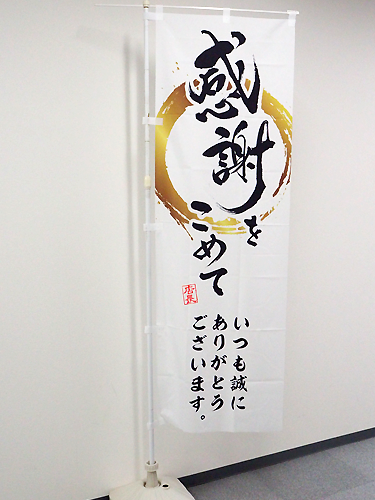 感謝を
こめて
店長
いつも誠に
ありがとう
ございます。